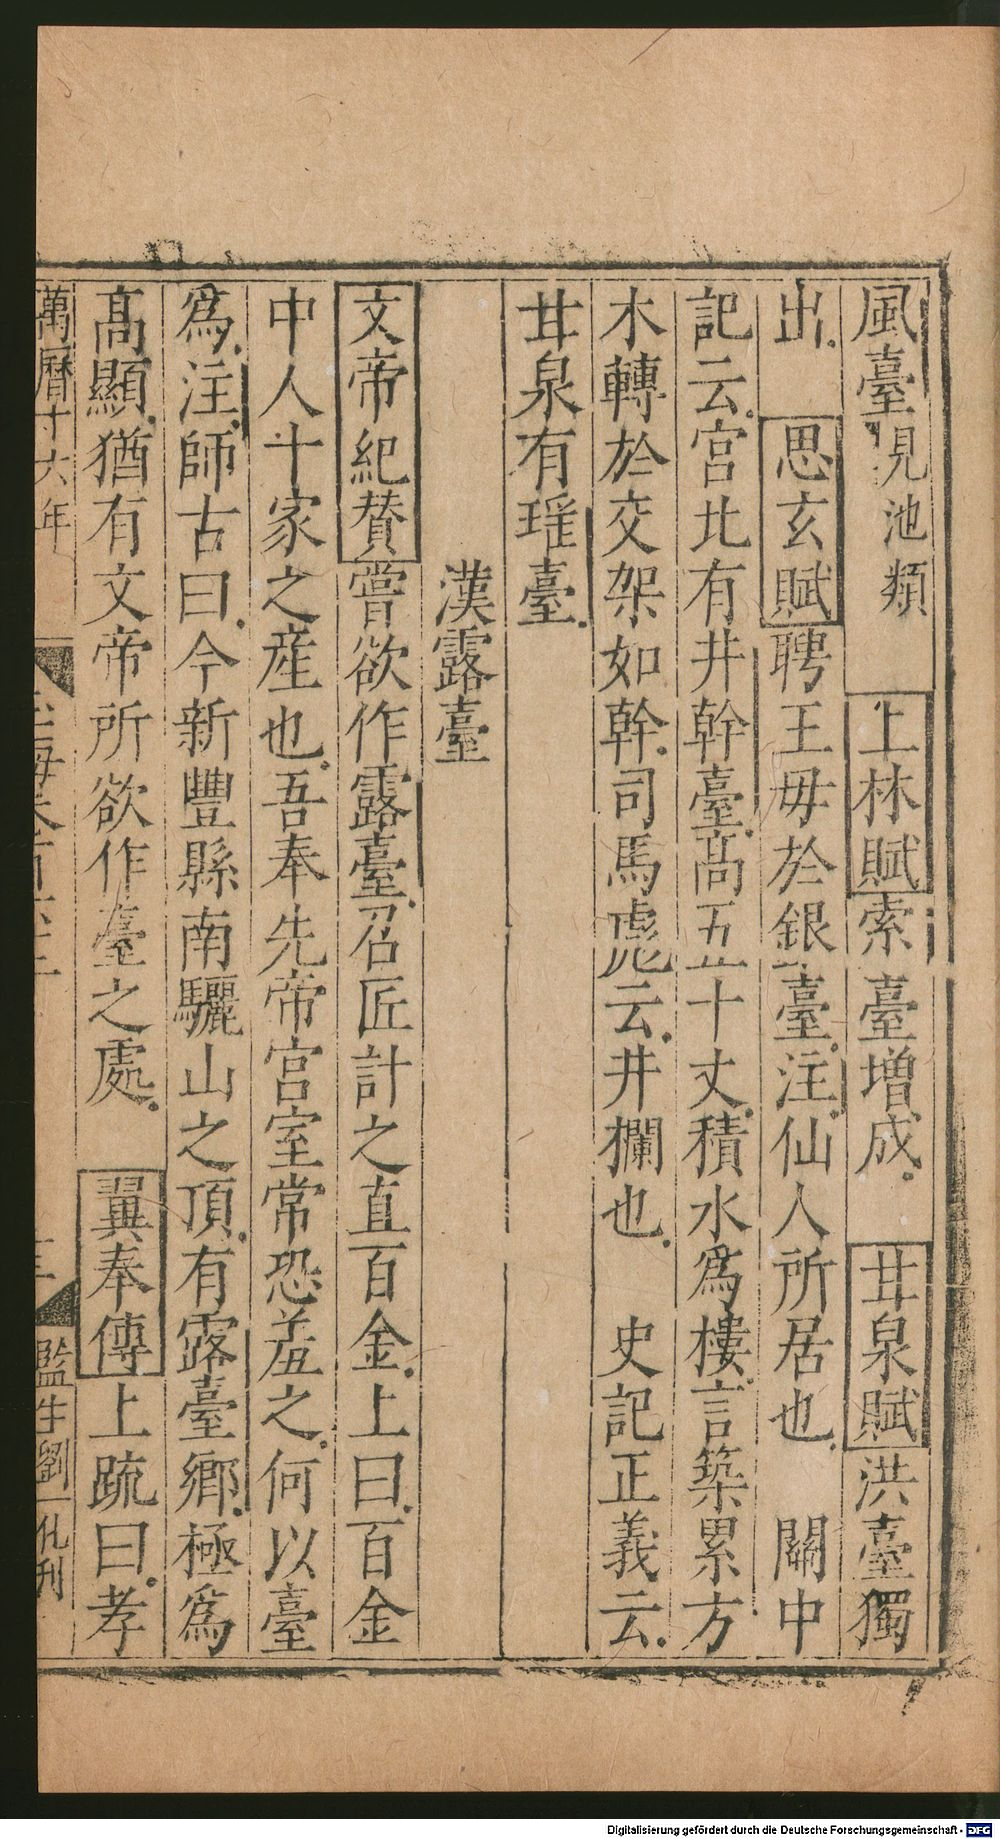 風臺見池類　上林賦索臺增成　甘泉賦洪臺獨
出　思玄賦聘王母於銀臺注仙人所居也　關中
記云宮北有井幹臺高五十丈積水爲樓言築累方
木轉於交架如幹司馬彪云井欄也　史記正義云
甘泉有瑤臺
漢露臺
文帝紀贊嘗欲作露臺召匠計之直百金上曰百金
中人十家之產也吾奉先帝宮室常恐羞之何以臺
爲注師古曰今新豐縣南驪山之頂有露臺鄉極爲
高顯猶有文帝所欲作臺之處　翼奉傳上疏曰孝
萬曆十六年
監生劉一
刊
Digitalisierung gefördert durch die Deutsche Forschungsgemeinschaft - DFG